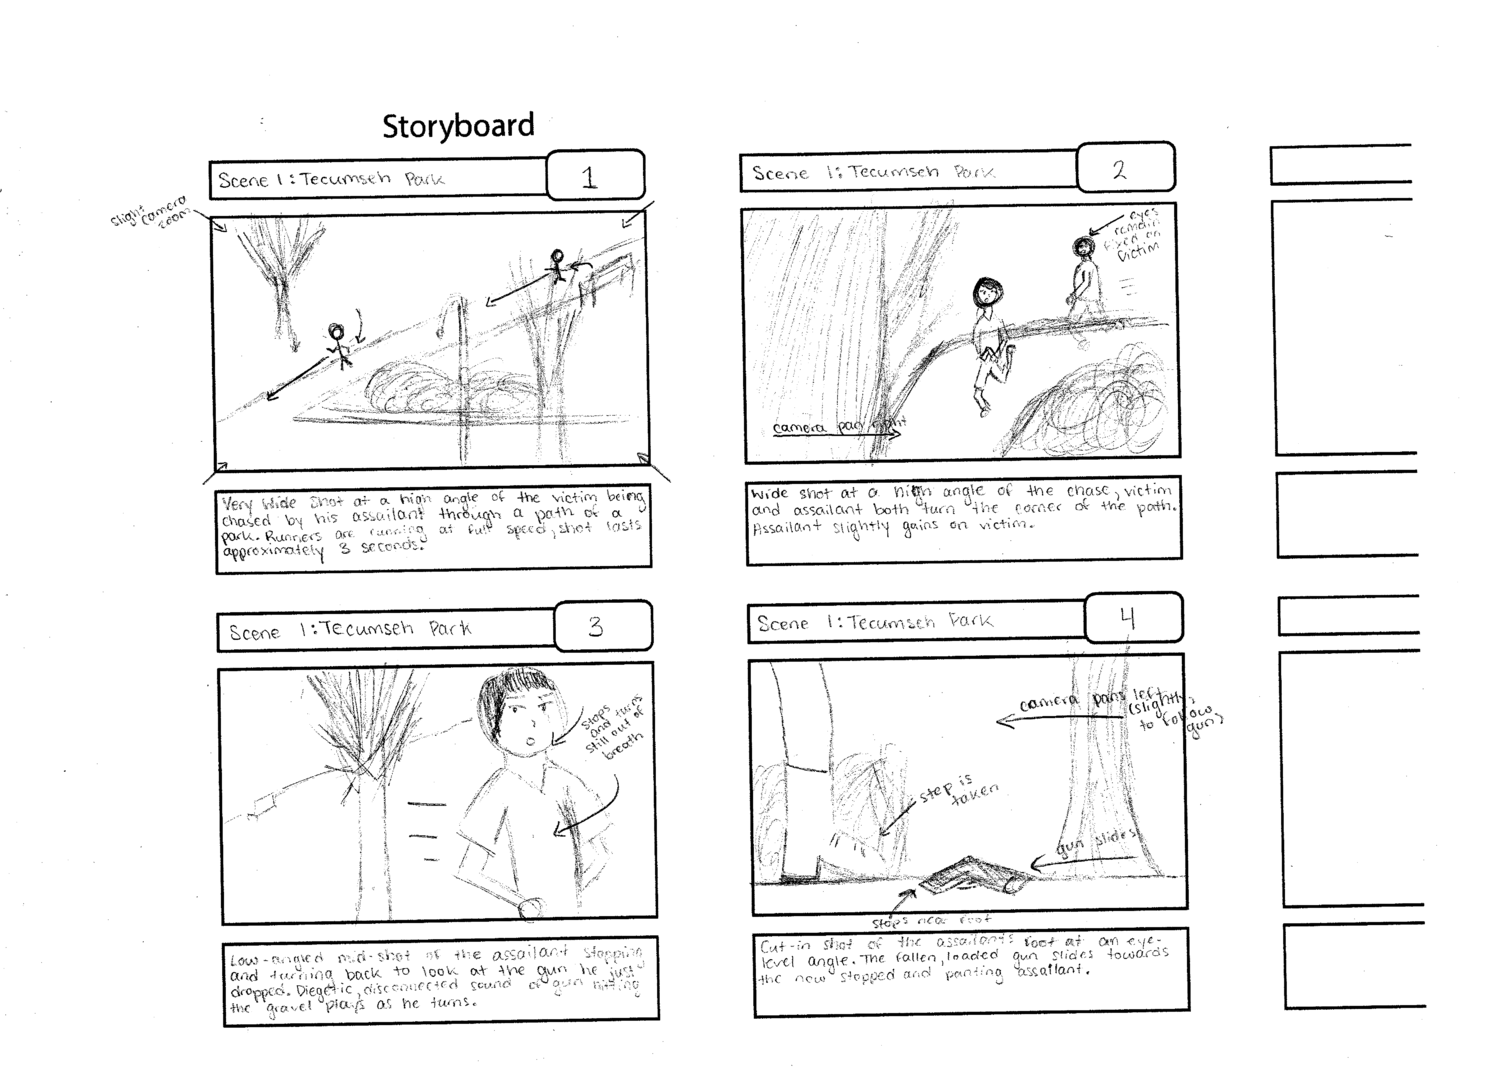 Storyboard
Scene 1: Tecumseh Park
1
slight camera
zoom
Very wide shot at a high angle of the victim being
chased by his assailant through a path of a
park. Runners are running at full speed, shot lasts
approximately 3 seconds.
Scene 1: Tecumseh Park
2
eyes
remain
fixed on
victim
camera pan right
Wide shot at a high angle of the chase, victim
and assailant both turn the corner of the path.
Assailant slightly gains on victim.
Scene 1: Tecumseh Park
3
Stops
and turns
still out of
breath
Low-angled mid-shot of the assailant stopping
and turning back to look at the gun he just
dropped. Diegetic, disconnected sound of gun hitting
the gravel plays as he turns.
Scene 1: Tecumseh Park
4
camera pans left
(slightly,
to follow
gun)
step is
taken
gun slides
stops near foot
Cut-in shot of the assailant's foot at an eye-
level angle. The fallen, loaded gun slides towards
the now stopped and panting assailant.